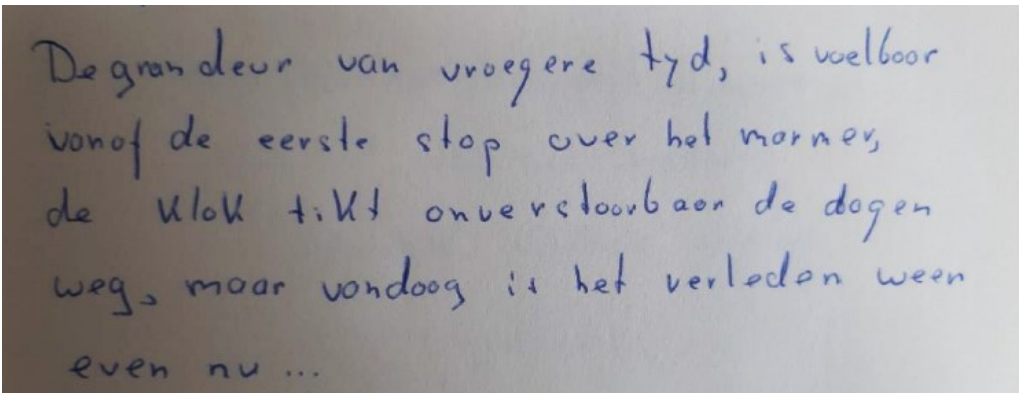 De grandeur van vroegere tyd, is voelbaar
vanaf de eerste stap over het marmer,
de klok tikt onverstoorbaar de dagen
weg, maar vandaag is het verleden weer
even nu...